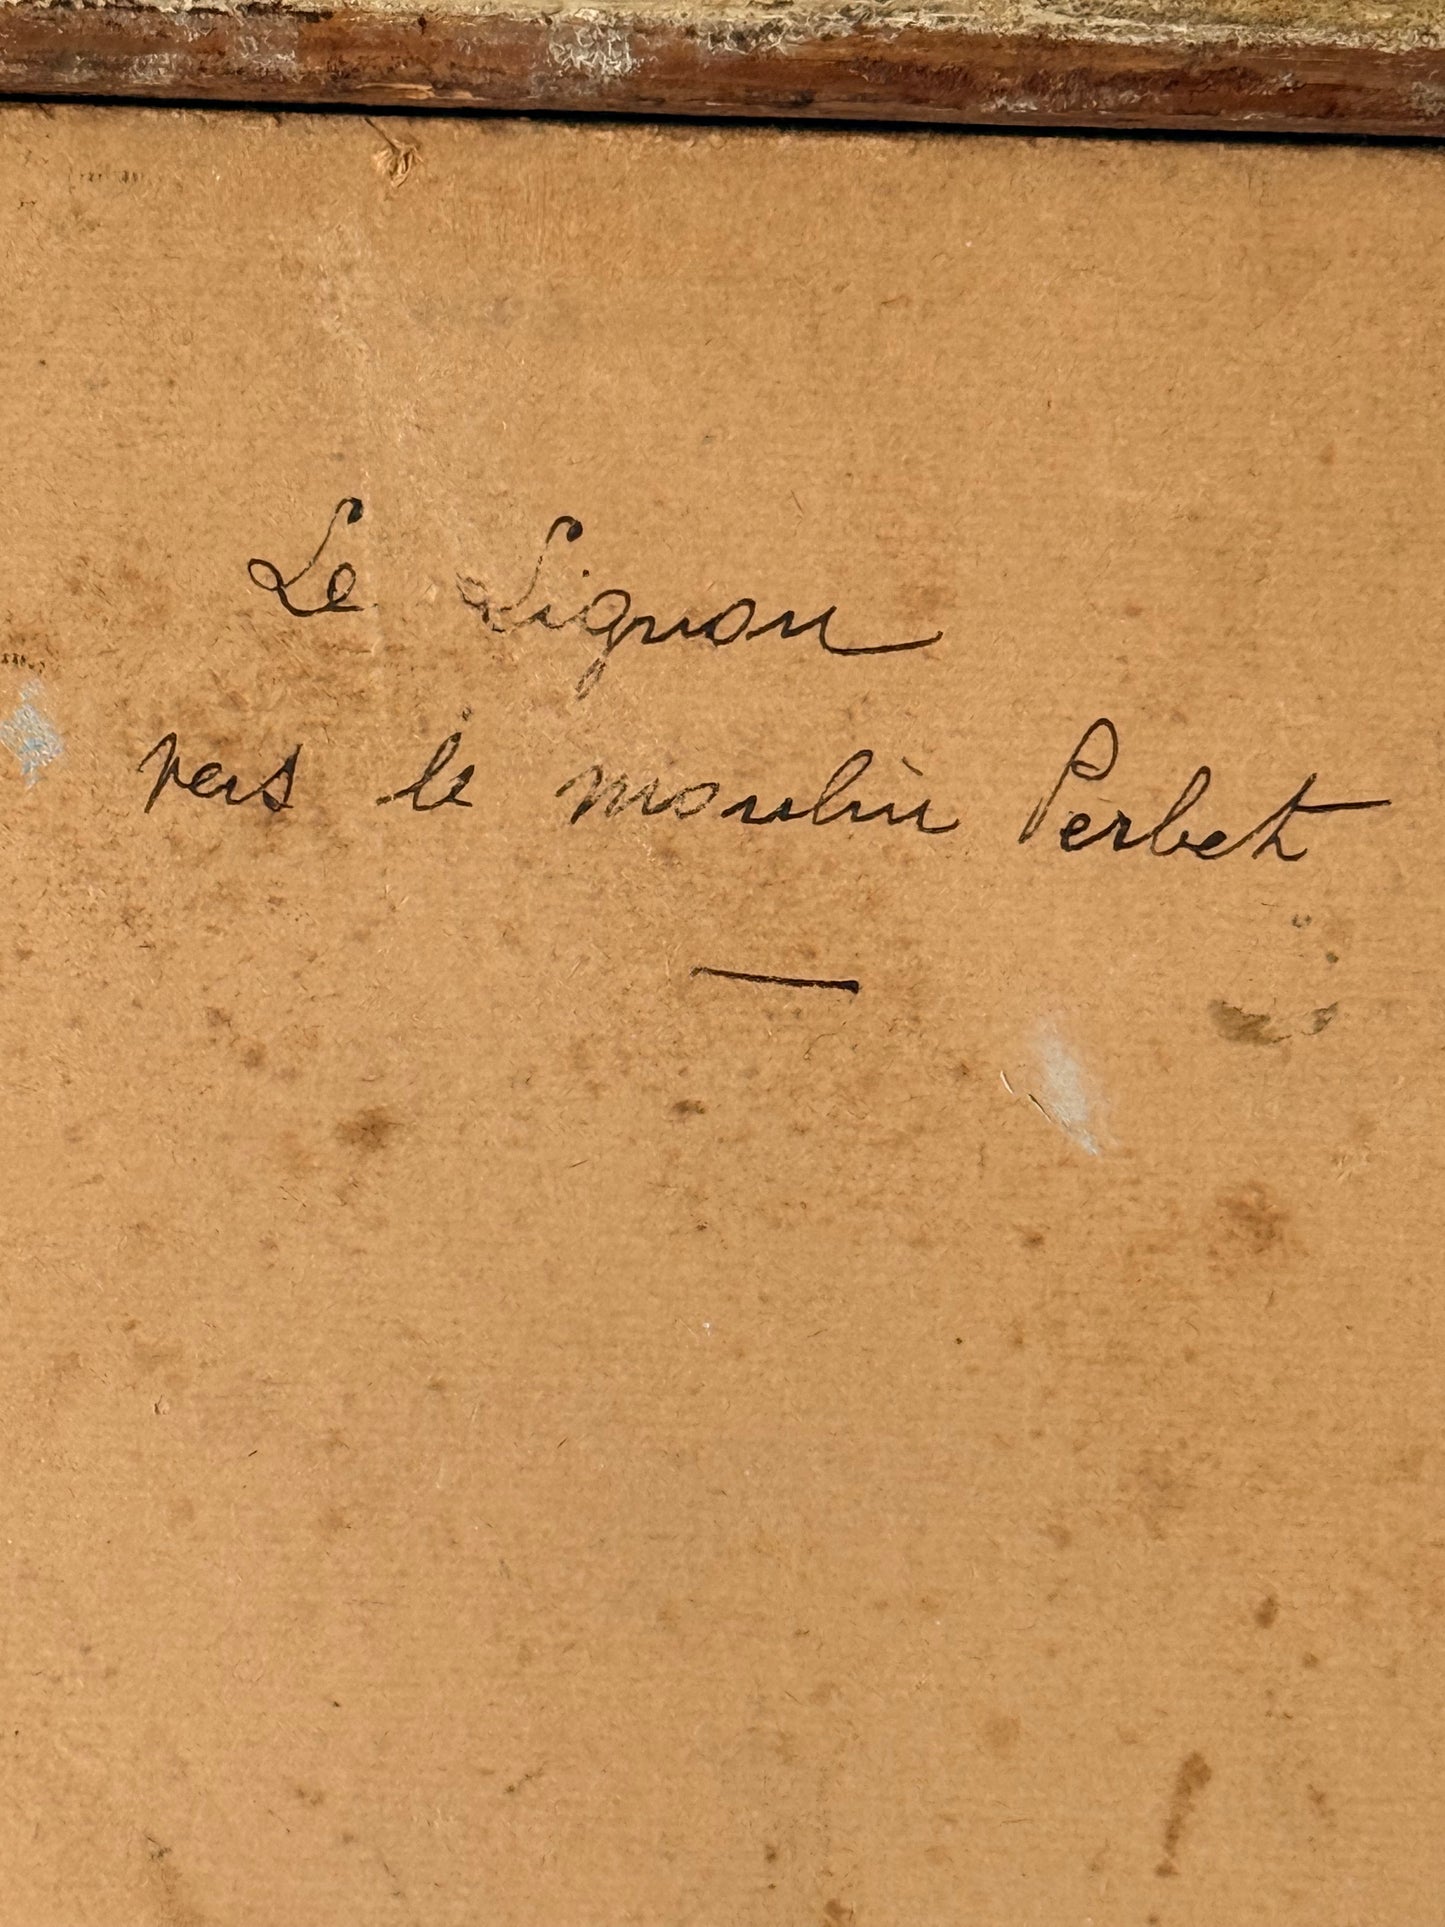 Le Lignon
vers le moulin Perbet